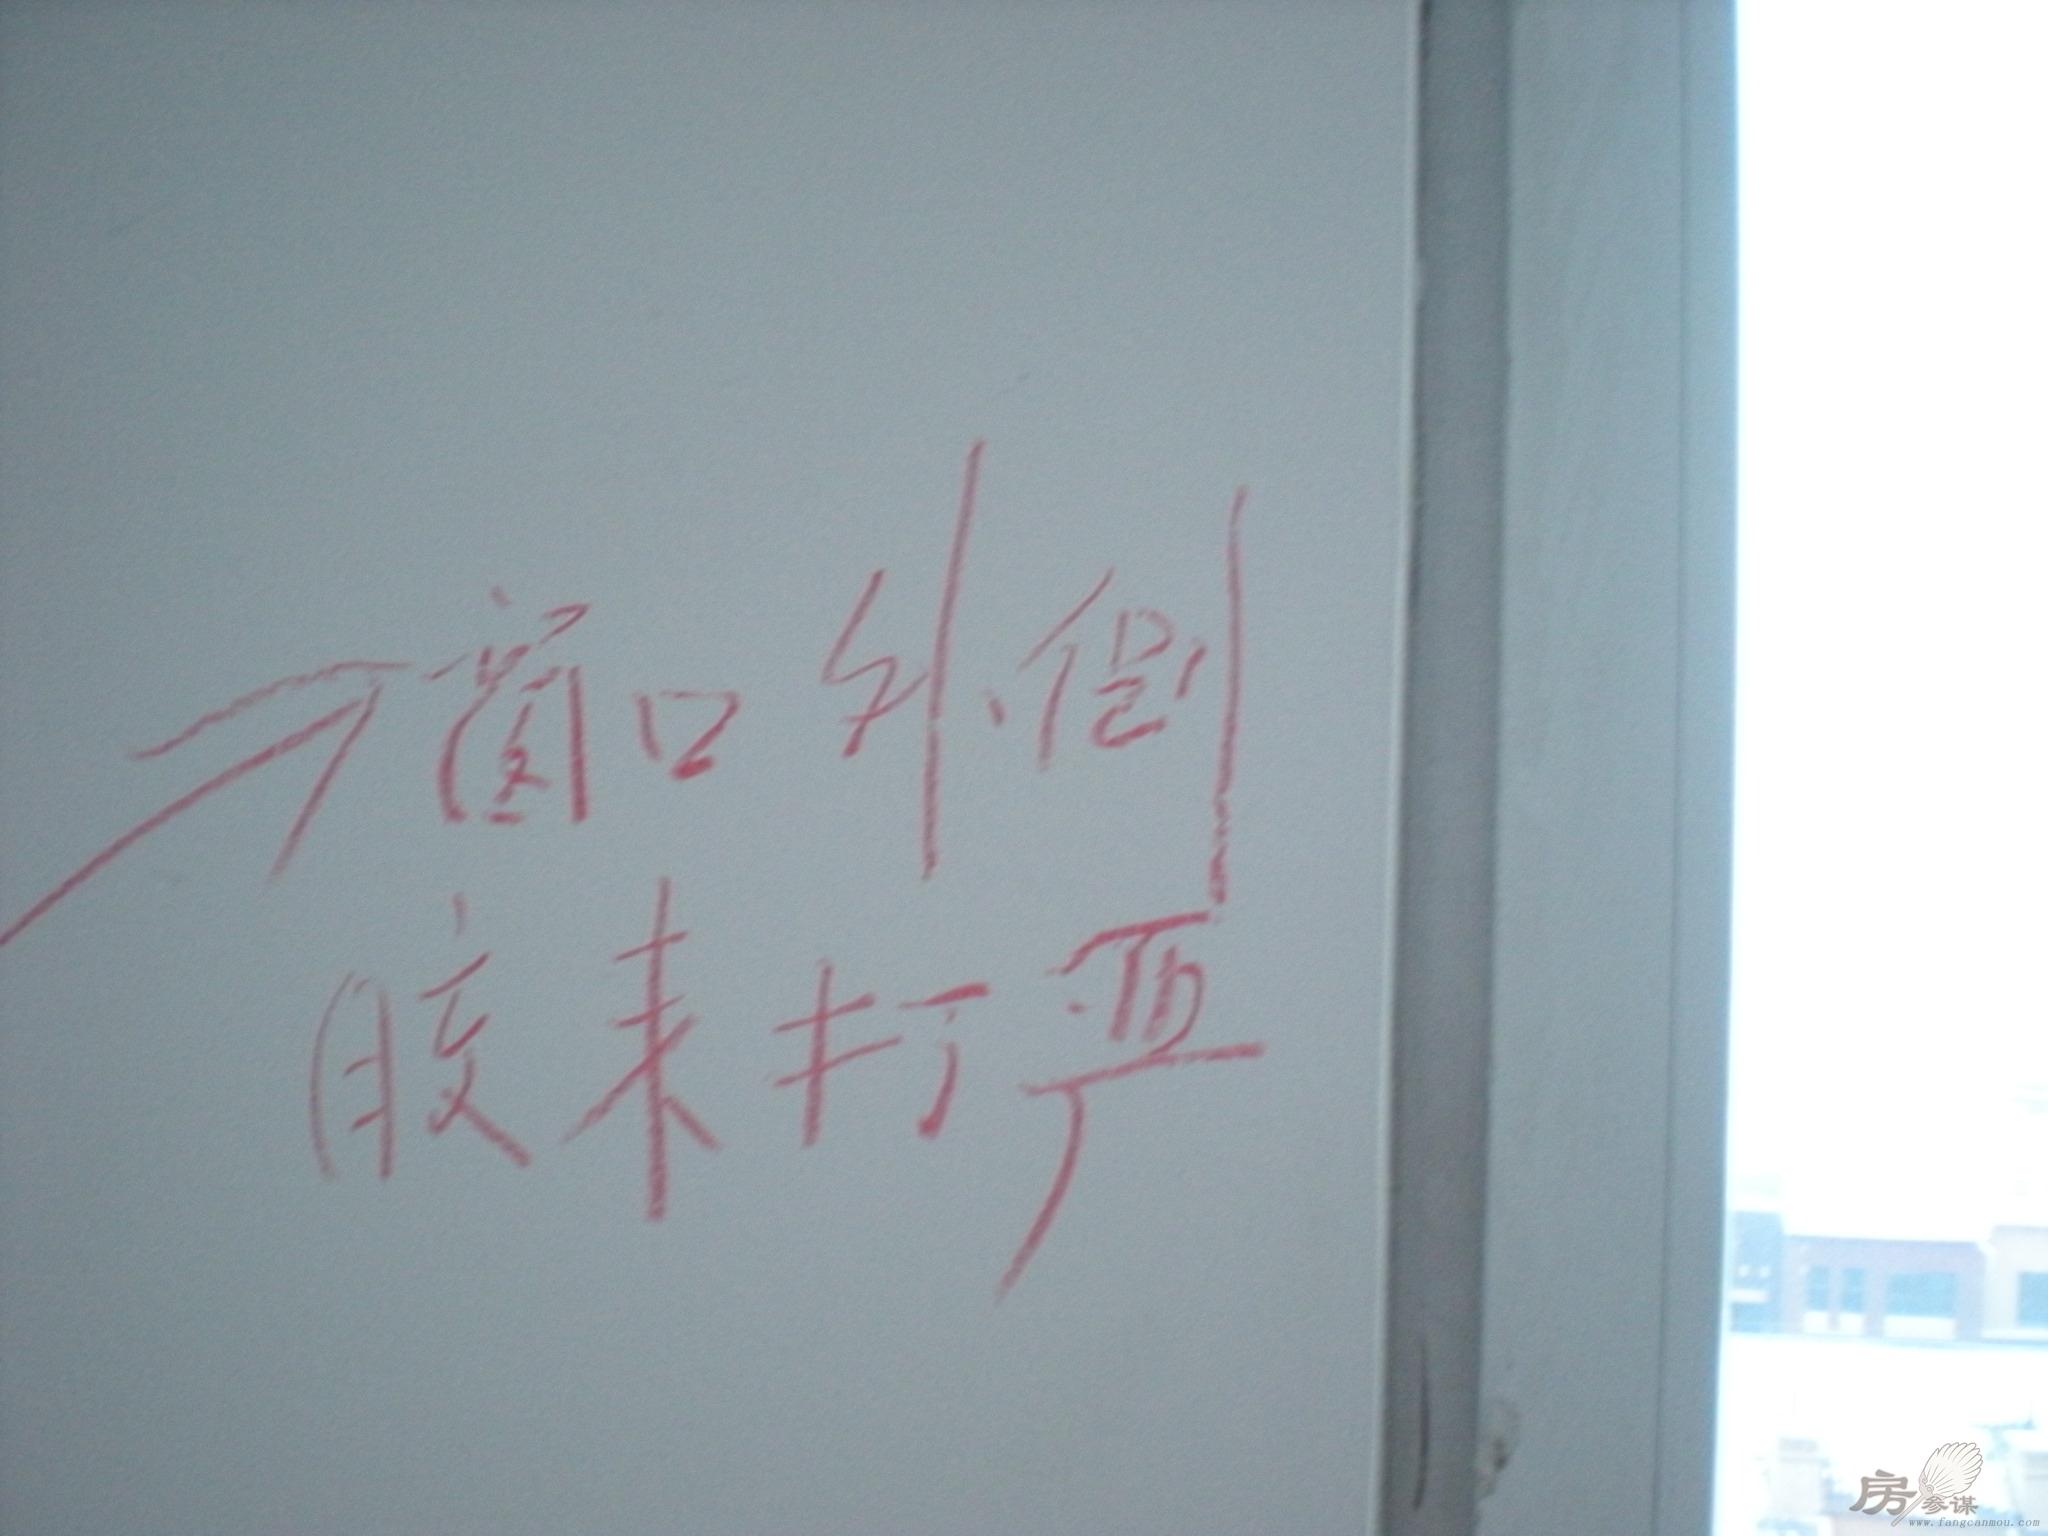 窗口外倒
胶未打严
房参谋
www.fangcanmou.com